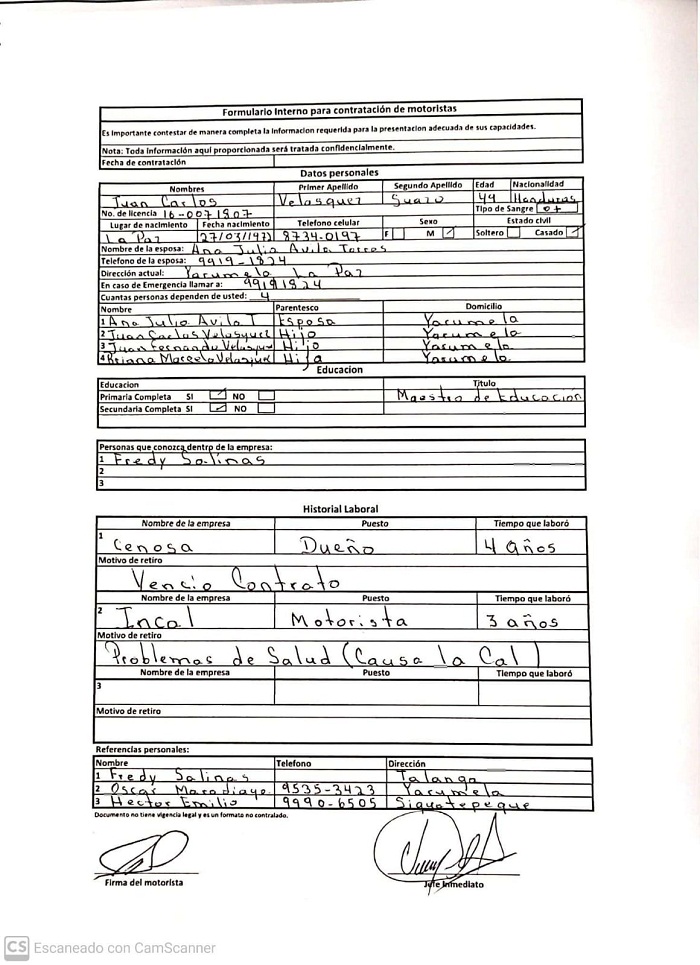 Formulario Interno para contratación de motoristas
Es Importante contestar de manera completa la Informacion requerida para la presentacion adecuada de sus capacidades.
Nota: Toda Información aqui proporcionada será tratada confidencialmente.
Fecha de contratación
Datos personales
Nombres Primer Apellido Segundo Apellido Edad Nacionalidad
Juan Carlos Velasquez Suazo 49 Honduras
No. de licencia 16-0071807 Tipo de Sangre O+
Lugar de nacimiento Fecha nacimiento Telefono celular Sexo Estado civil
La Paz 27/03/197 8734-0197 F M Soltero Casado
Nombre de la esposa: Ana Julia Avila Torres
Telefono de la esposa: 9919-1824
Dirección actual: Yarumela La Paz
En caso de Emergencia llamar a: 99191824
Cuantas personas dependen de usted: 4
Nombre Parentesco Domicilio
1 Ana Julia Avila T Esposa Yarumela
2 Juan Carlos Velasquez Hijo Yarumela
3 Juan Fernando Velasquez Hijo Yarumela
4 Briana Marcela Velasquez Hija Yarumela
Educacion
Educacion Titulo
Primaria Completa SI NO Maestro de Educación
Secundaria Completa SI NO
Personas que conozca dentro de la empresa:
1 Fredy Salinas
2
3
Historial Laboral
Nombre de la empresa Puesto Tiempo que laboró
1 Cenosa Dueño 4 años
Motivo de retiro
Vencio Contrato
Nombre de la empresa Puesto Tiempo que laboró
2 Incal Motorista 3 años
Motivo de retiro
Problemas de Salud (Causa la Cal)
Nombre de la empresa Puesto Tiempo que laboró
3
Motivo de retiro
Referencias personales:
Nombre Telefono Dirección
1 Fredy Salinas Talanga
2 Oscar Maradiaga 9535-3423 Yarumela
3 Hector Emilio 9990-6505 Siguatepeque
Documento no tiene vigencia legal y es un formato no contralado.
Firma del motorista Jefe Inmediato
CS Escaneado con CamScanner